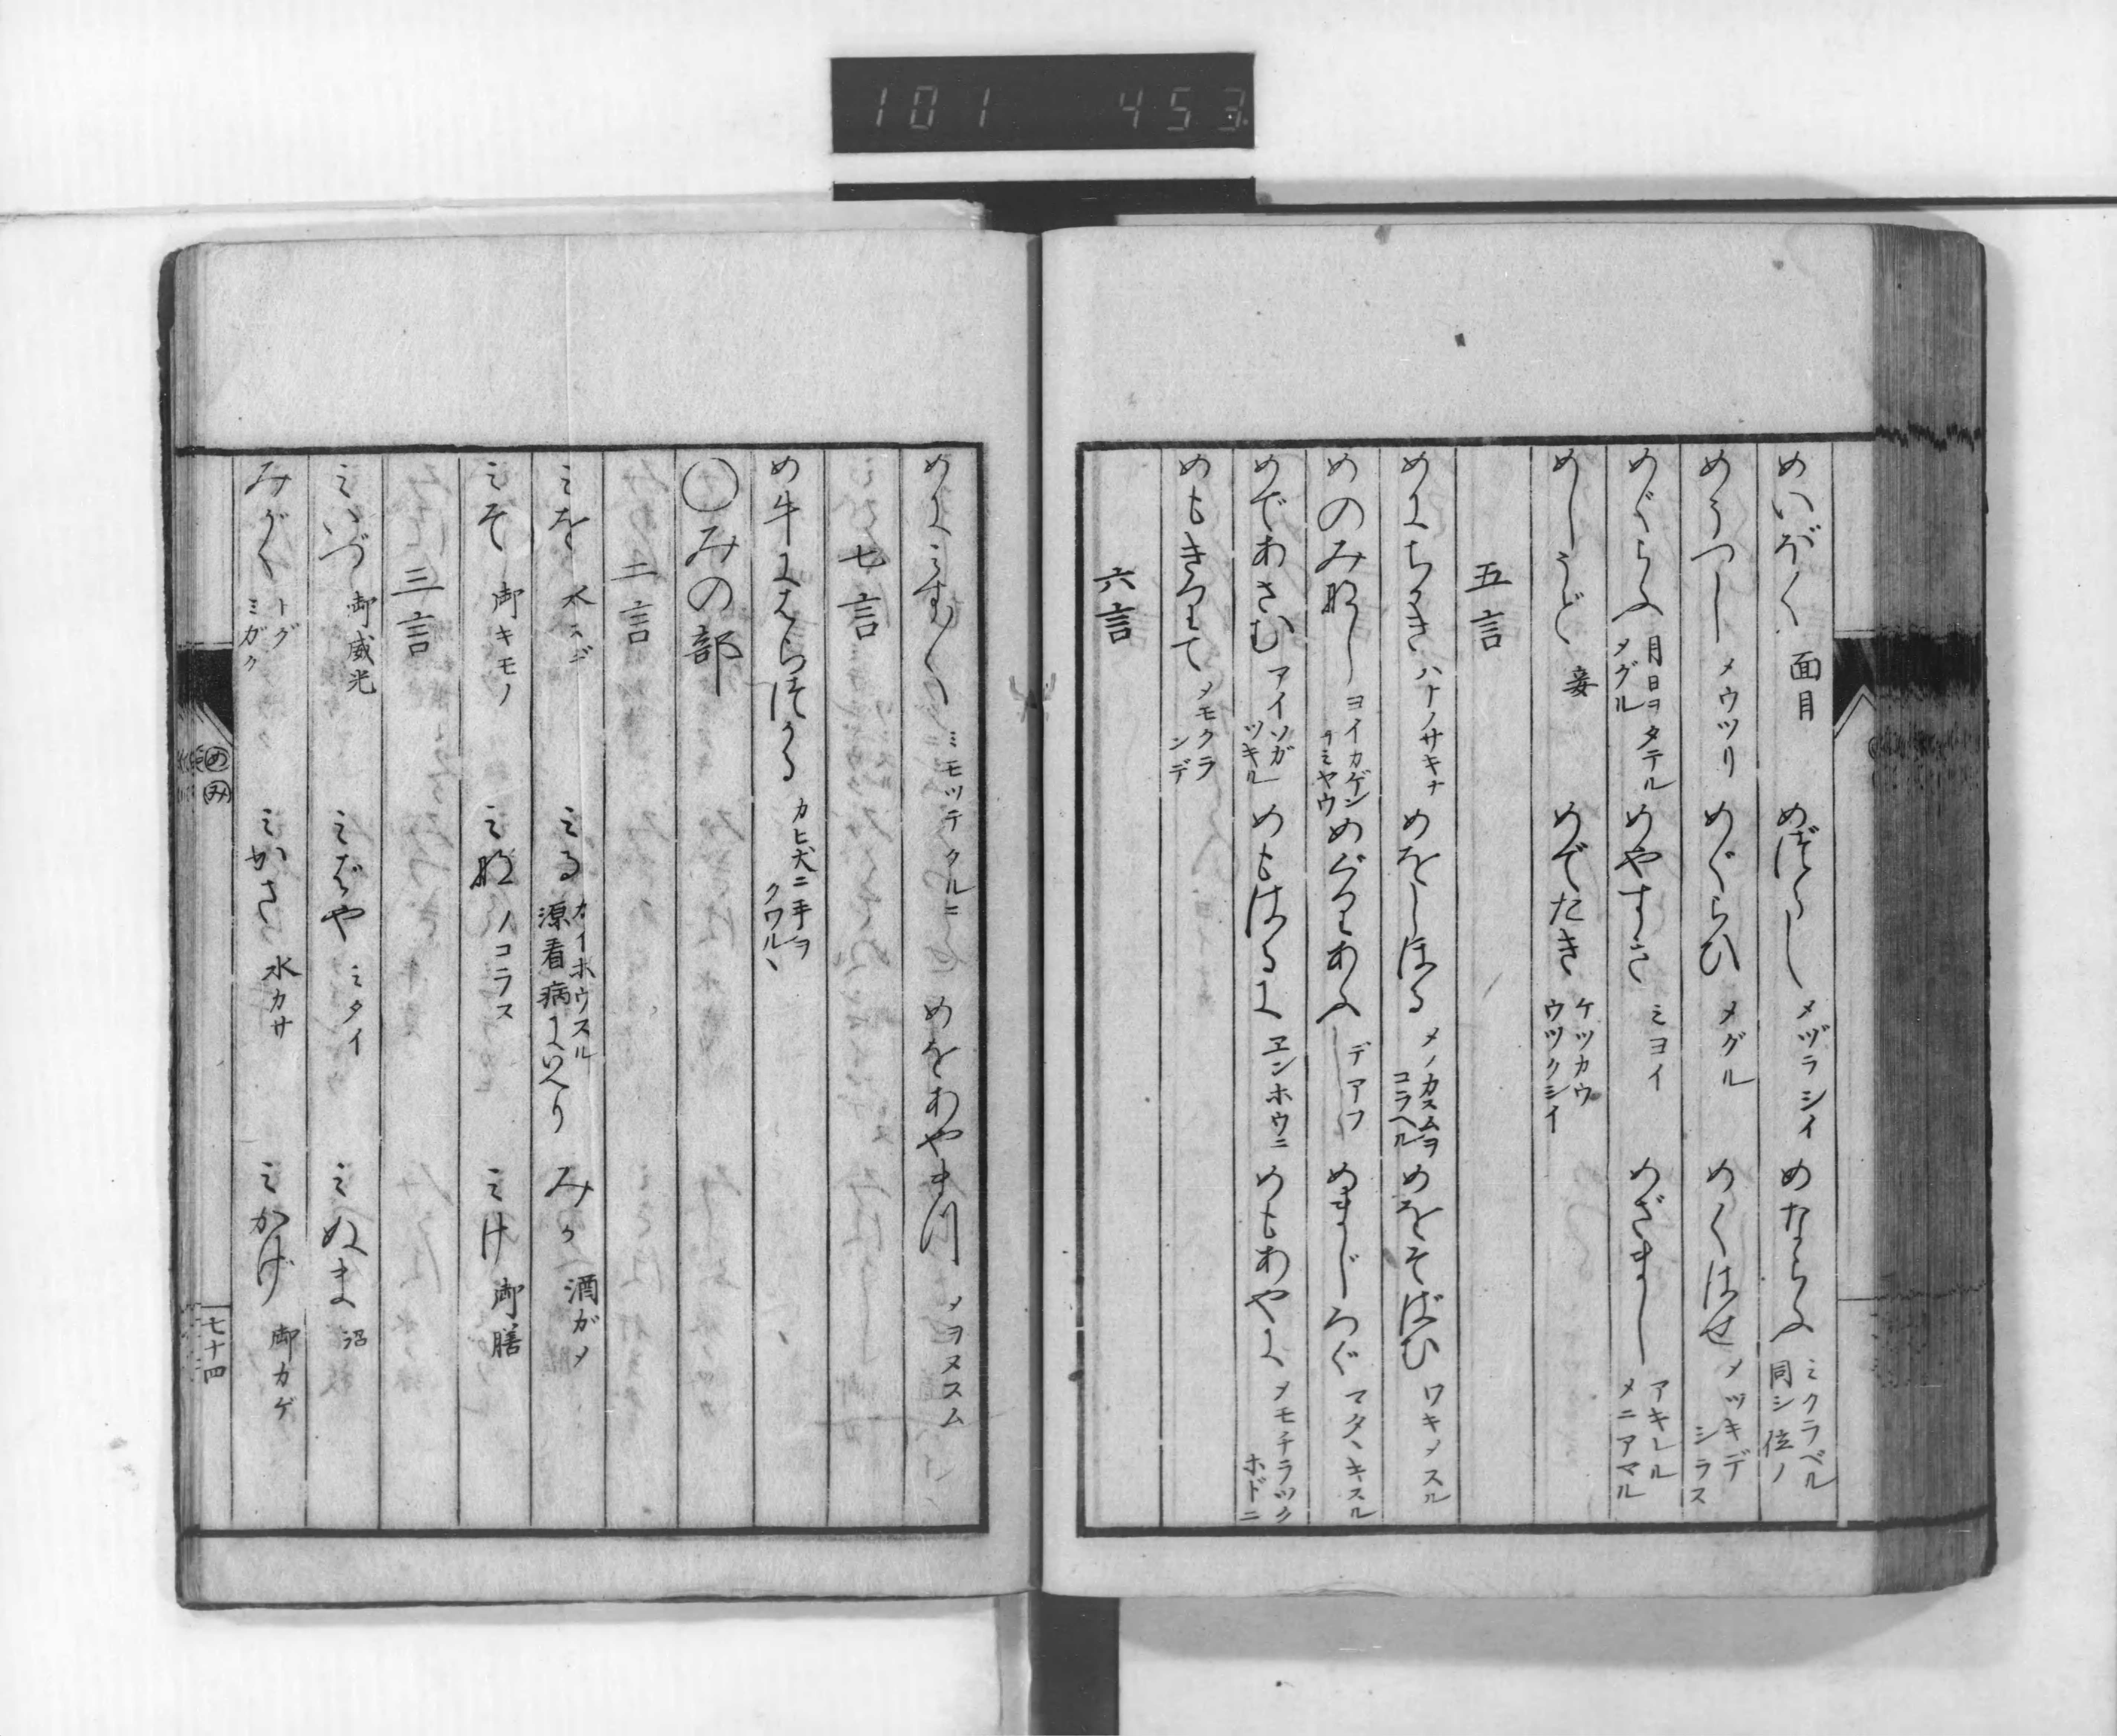 101 453
めいぼく 面目 めづらし メヅラシイ めならふ ミクラベル 同シ位ノ
めうつし メウツリ めぐらひ メグル めくはせ メツキデ シラス
めぐらふ 月日ヲタテル メグル めやすき ミヨイ めざまし アキレル メニアマル
めしうど 妾 めでたき ケツカウ ウツクシイ
五言
めにちかき ハナノサキナ めをしほる メノカスムヲ コラヘル めをそばむ ワキメスル
めのみなし ヨイカゲン ラミヤウ めぐりあふ デアフ めまじろぐ マタヽキスル
めであさむ アイソガ ツキル めもはるに ヱンホウニ めもあやに メモチラツク ホドニ
めもきりて メモクラ ンデ
六言
めにみす〳〵 ミモツテクルニ めをあやまつ メヲヌスム
七言
め牛にはらつかる カヒ犬ニ手ヲ クワルヽ
○みの部
二言
みを 水スヂ みる カイホウスル 源看病にいへり みか 酒ガメ
みそ 御キモノ みな ノコラス みけ 御膳
三言
みいづ 御威光 みばや ミタイ みぬま 沼
みがく トグ ミガク みかさ 水カサ みかげ 御カゲ
め み
七十四